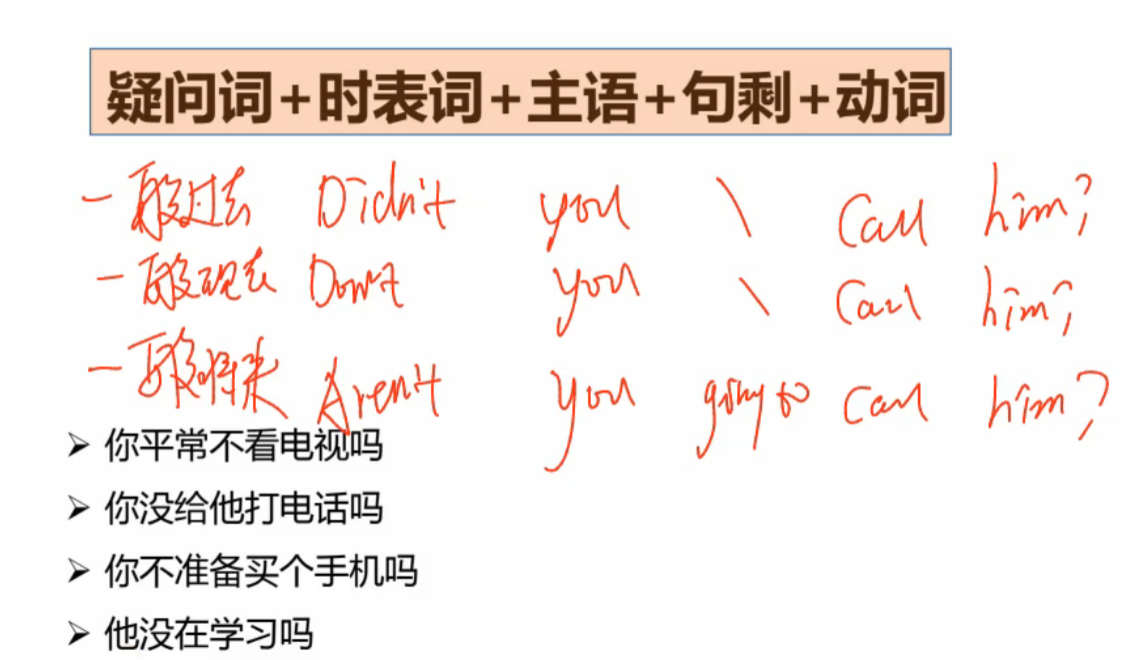 疑问词+时表词+主语+句剩+动词
一般过去 Didn't you \ Call him?
一般现在 Don't you \ Call him?
一般将来 Aren't you going to Call him?
➢ 你平常不看电视吗
➢ 你没给他打电话吗
➢ 你不准备买个手机吗
➢ 他没在学习吗